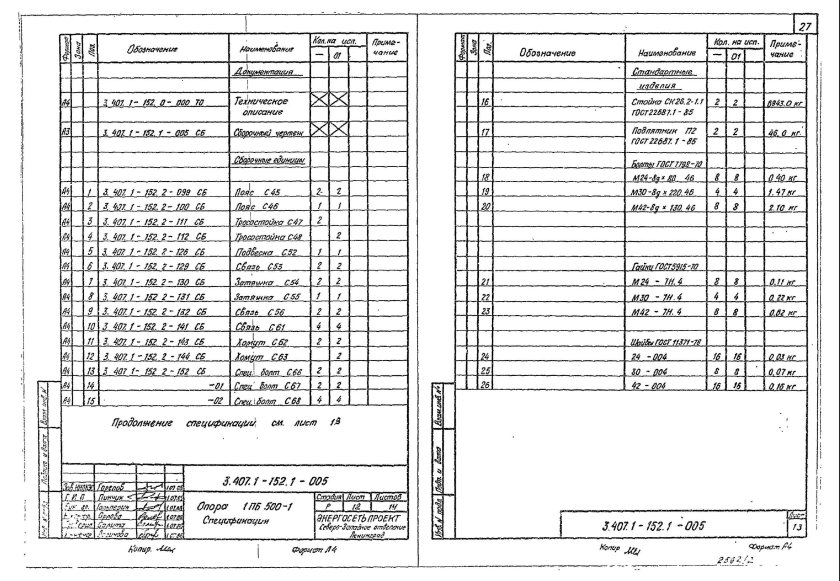 27
Формат Зона Поз. Обозначение Наименование Кол. на исп. Приме-
— 01 чание
Документация
А4 3.407.1-152.0-000 ТО Техническое
описание
А3 3.407.1-152.1-005 СБ Сборочный чертеж
Сборочные единицы
А4 1 3.407.1-152.2-099 СБ Пояс С45 2 2
А4 2 3.407.1-152.2-100 СБ Пояс С46 1 1
А4 3 3.407.1-152.2-111 СБ Тросостойка С47 2
А4 4 3.407.1-152.2-112 СБ Тросостойка С48 2
А4 5 3.407.1-152.2-126 СБ Подвеска С52 1 1
А4 6 3.407.1-152.2-129 СБ Связь С53 2 2
А4 7 3.407.1-152.2-130 СБ Затяжка С54 2 2
А4 8 3.407.1-152.2-131 СБ Затяжка С55 1 1
А4 9 3.407.1-152.2-132 СБ Связь С56 2 2
А4 10 3.407.1-152.2-141 СБ Связь С61 4 4
А4 11 3.407.1-152.2-143 СБ Хомут С62 2 2
А4 12 3.407.1-152.2-144 СБ Хомут С63 2
А4 13 3.407.1-152.2-152 СБ Спец. болт С66 2 2
А4 14 -01 Спец. болт С67 2 2
А4 15 -02 Спец. болт С68 4 4
Продолжение спецификации см. лист 13
3.407.1-152.1-005
Опора 1ПБ 500-1
Спецификация
Стадия Лист Листов
Р 12 14
ЭНЕРГОСЕТЬПРОЕКТ
Северо-Западное отделение
Ленинград
Горелов
Г.И.П. Пинчук
Орлова
Копир. Формат А4
Формат Зона Поз. Обозначение Наименование Кол. на исп. Приме-
— 01 чание
Стандартные
изделия
16 Стойка СК26.2-1.1 2 2 6943.0 кг
ГОСТ 22687.1-85
17 Подпятник П2 2 2 46.0 кг
ГОСТ 22687.1-85
Болты ГОСТ 7798-70
18 М24-8g×80.46 8 8 0.40 кг
19 М30-8g×220.46 4 4 1.47 кг
20 М42-8g×130.46 8 8 2.10 кг
Гайки ГОСТ 5915-70
21 М24-7Н.4 8 8 0.11 кг
22 М30-7Н.4 4 4 0.22 кг
23 М42-7Н.4 8 8 0.62 кг
Шайбы ГОСТ 11371-78
24 24-004 16 16 0.03 кг
25 30-004 8 8 0.07 кг
26 42-004 16 16 0.16 кг
3.407.1-152.1-005
Лист
13
Копир Формат А4
2562/2